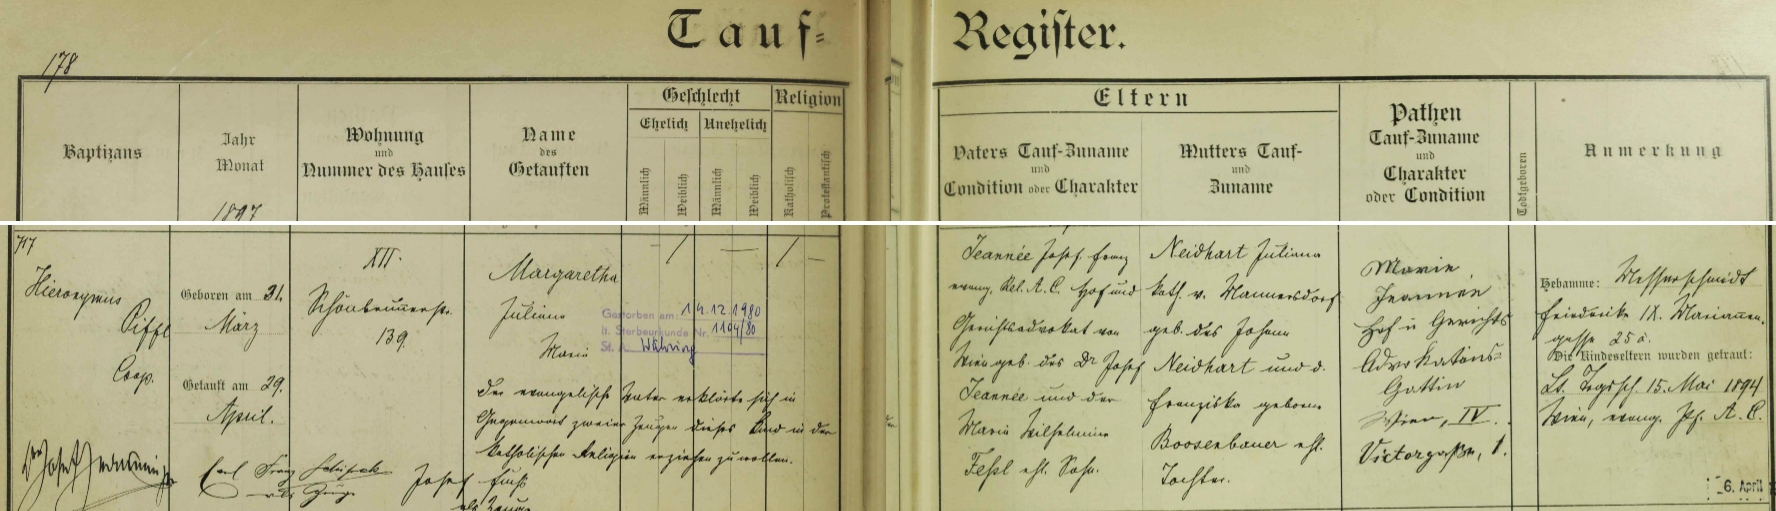 178
Tauf=
Register.
Baptizans
Jahr
Monat
1897
Wohnung
und
Nummer des Hauses
Name
des
Getauften
Geschlecht
Ehelich
Unehelich
Männlich
Weiblich
Männlich
Weiblich
Religion
Katholisch
Protestantisch
Eltern
Vaters Tauf-Zuname
und
Condition oder Charakter
Mutters Tauf-
und
Zuname
Pathen
Tauf-Zuname
und
Charakter
oder Condition
Todtgeboren
Anmerkung
717
Hieronymus
Piffl
Coop.
Geboren am 31.
März
Getauft am 29.
April.
XII.
Schönbrunnerstr.
139.
Margaretha
Juliana
Maria
Gestorben am: 14.12.1980
lt. Sterbeurkunde Nr. 1104/80
St. A. Währing
Der evangelische Vater erklärte sich in
Gegenwart zweier Zeugen dieses Kind in der
katholischen Religion erziehen zu wollen.
Carl Franz
als Zeuge
Josef Fuchs
als Zeuge
Jeannée Josef Franz
evang. Rel. A. C. Hof und
Gerichtsadvokat von
Wien geb. des Dr Josef
Jeannée und der
Maria Wilhelmine
ehl. Sohn.
Neidhart Juliana
kath. v. Mannersdorf
geb. des Johann
Neidhart und d.
Franziska geborne
Boosenbauer ehl.
Tochter.
Marie
Jeannée
Hof u Gerichts
Advokatens=
Gattin
Wien, IV.
Victorgasse, 1.
Hebamme: Messerschmidt
Friederike IX. Mariannen-
gasse 25 a.
Die Kindeseltern wurden getraut:
Lt. Trgsch. 15. Mai 1894
Wien, evang. Pf. A. C.
6. April